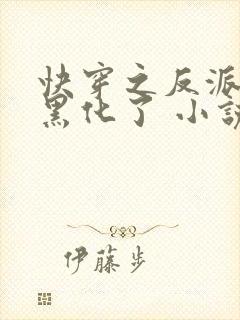 快穿之反派
黑化了 小说
伊藤步